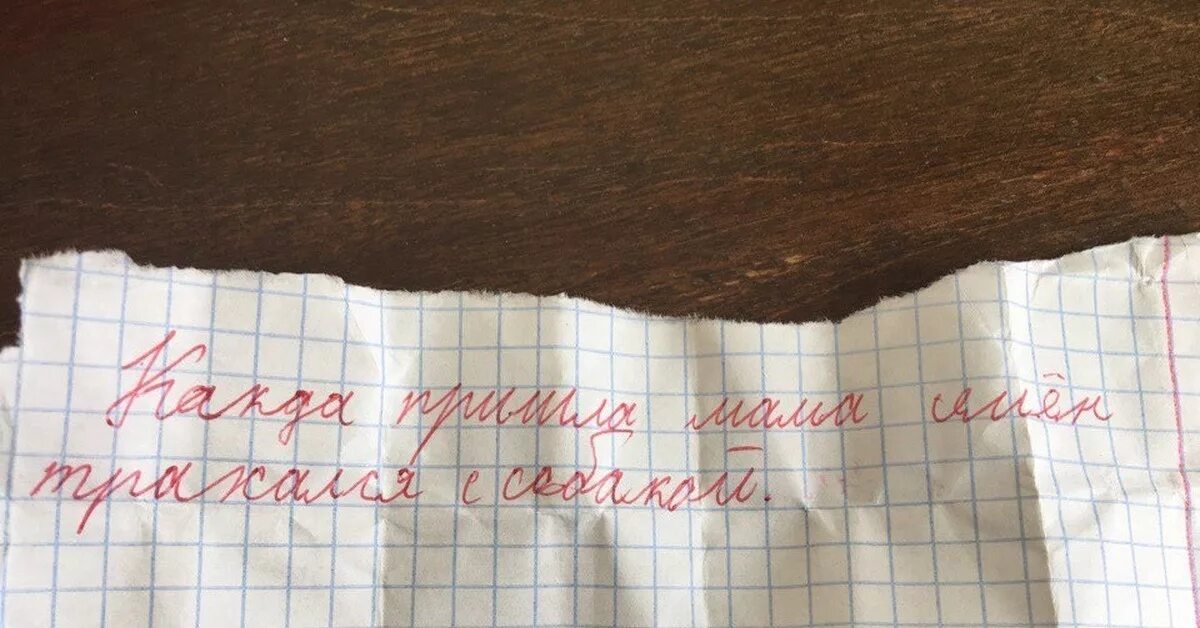 Какда пришла мама сямён
трахался с собакой.